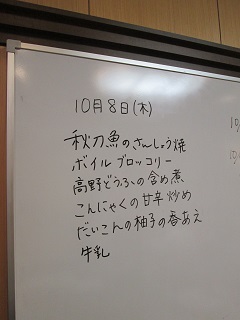 10月8日(木)
秋刀魚のさんしょう焼
ボイルブロッコリー
高野どうふの含め煮
こんにゃくの甘辛炒め
だいこんの柚子の香あえ
牛乳